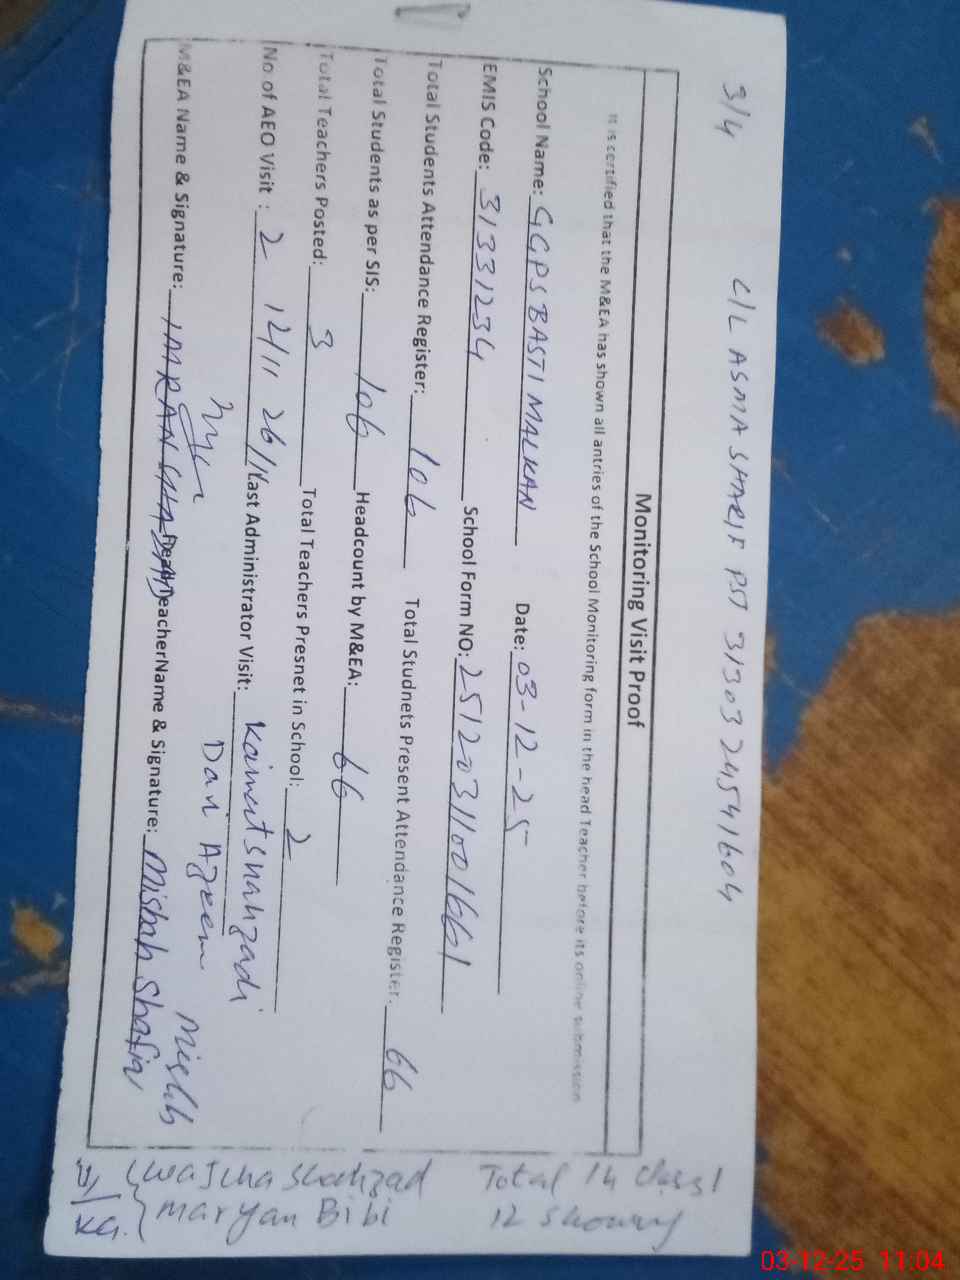 3/4 C/L ASMA SHARIF PST 31303 24541604
Monitoring Visit Proof
It is certified that the M&EA has shown all antries of the School Monitoring form in the head Teacher before its online submission
School Name: GGPS BASTI MALKAN Date: 03-12-25
EMIS Code: 31331234 School Form NO: 251203110016661
Total Students Attendance Register: 106 Total Studnets Present Attendance Register. 66
Total Students as per SIS: 106 Headcount by M&EA: 66
Total Teachers Posted: 3 Total Teachers Presnet in School: 2
No of AEO Visit : 2 12/11 26/11 Last Administrator Visit: Kainat shahzadi
M&EA Name & Signature: IMRAN Head TeacherName & Signature: Misbah Shafiq
Total 14
12
Shahzad
maryan Bibi
03-12-25 11:04